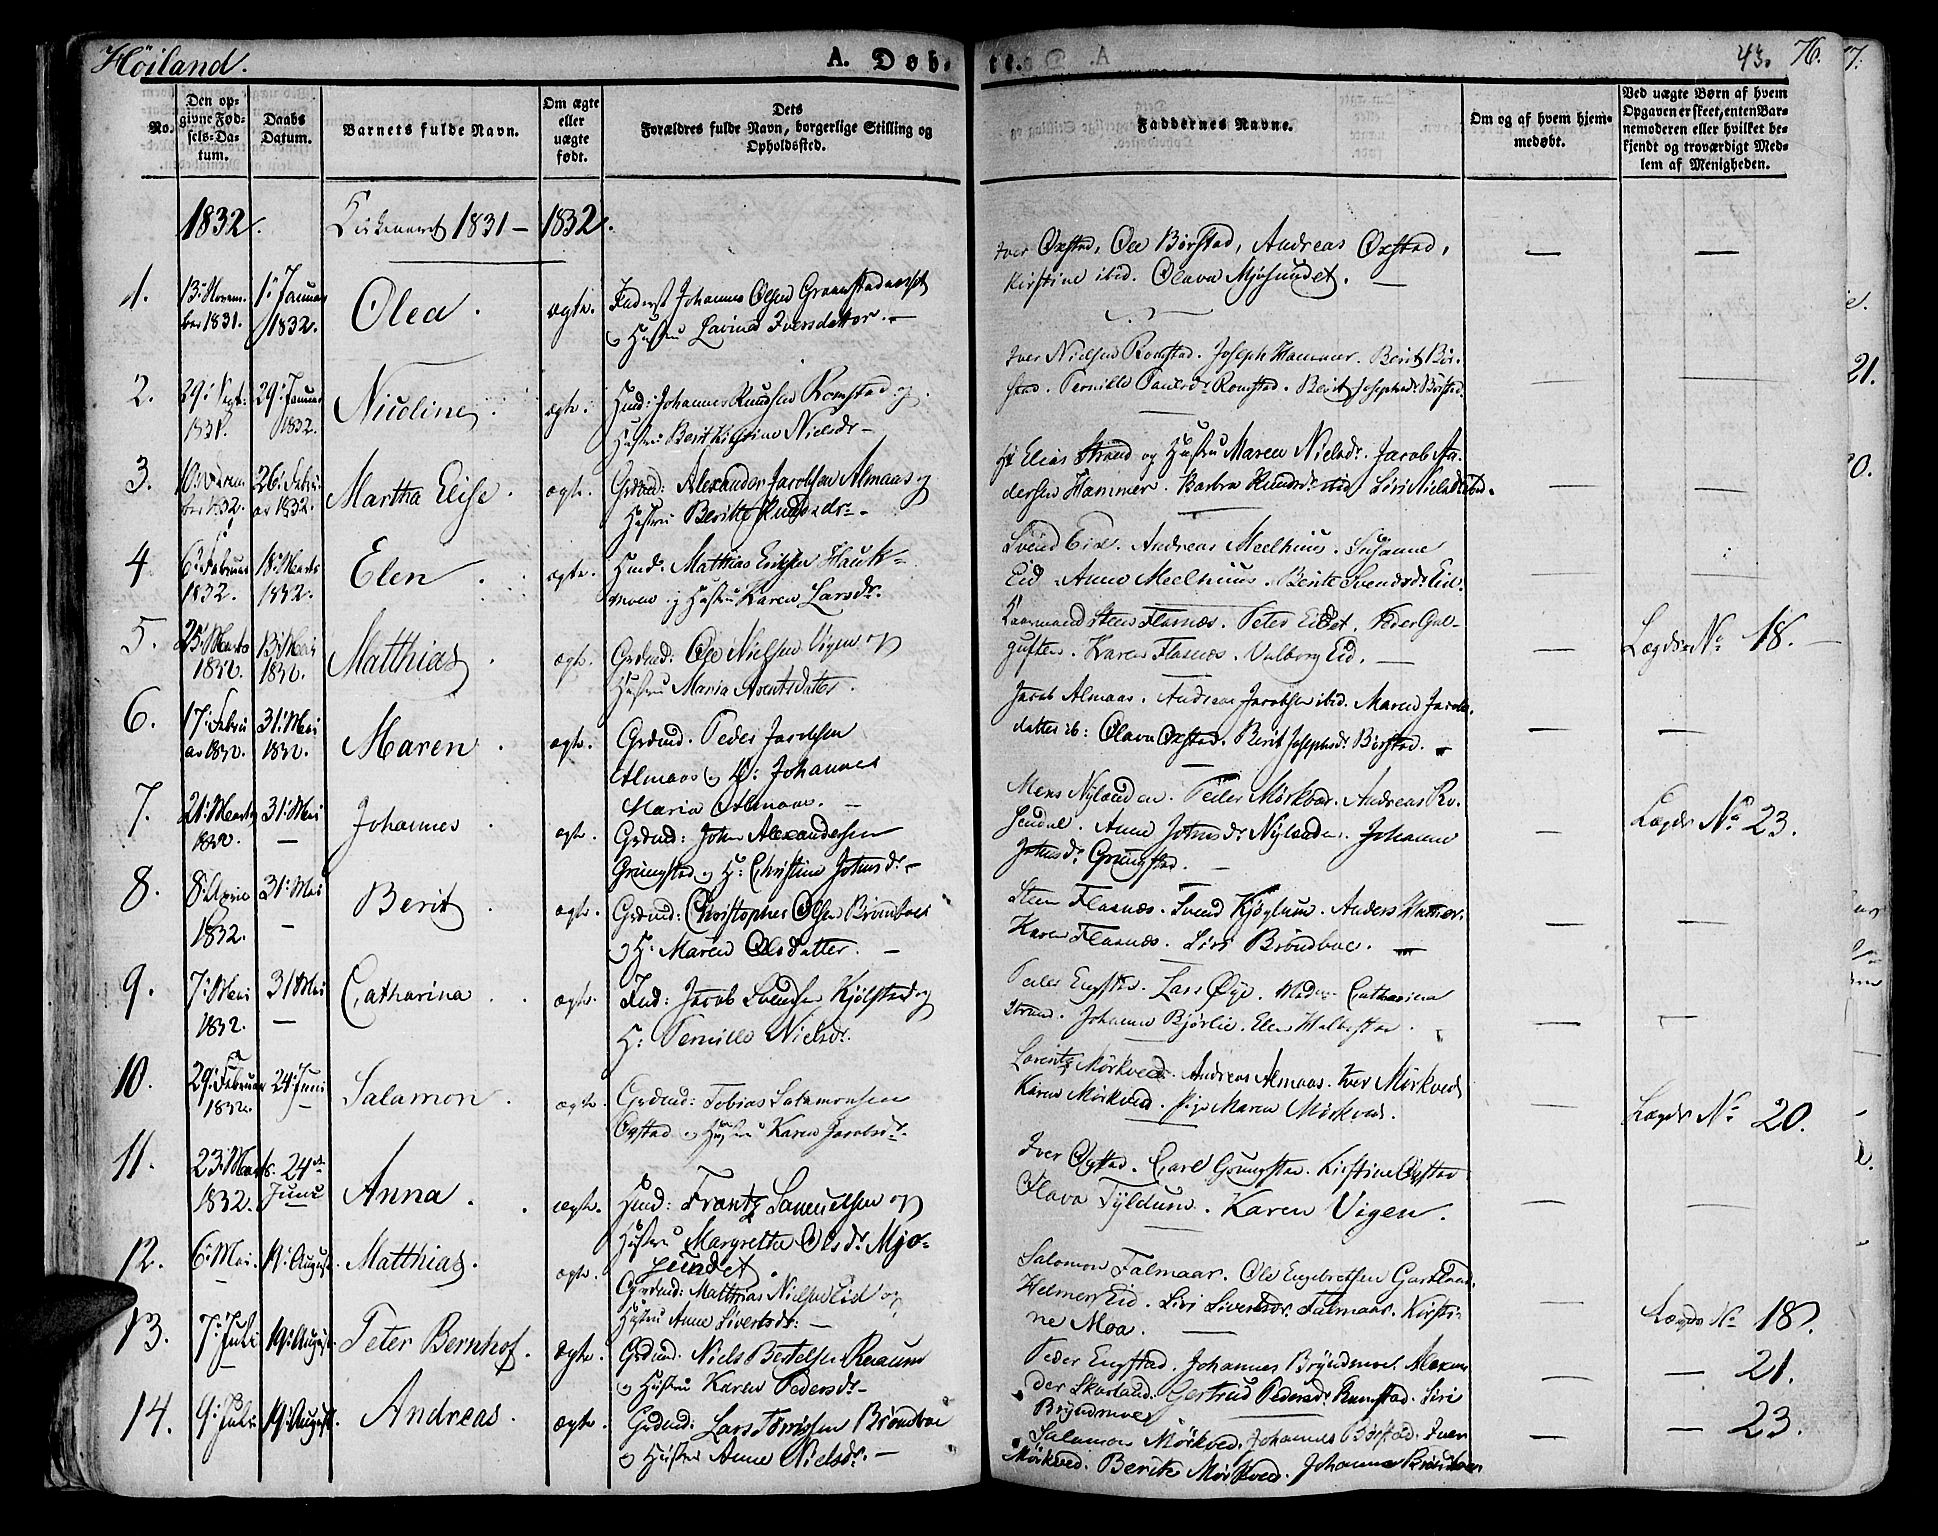 Höiland.
A. Døb-
te.
43. 76. 77.
No.
Den op-
givne Fød-
sels-Da-
tum.
Daabs
Datum.
Barnets fulde Navn.
Om ægte
eller
uægte
født.
Dets
Forældres fulde Navn, borgerlige Stilling og
Opholdssted.
Faddernes Navne.
Om og af hvem hjem-
medøbt.
Ved uægte Børn af hvem
Opgaven er skeet, enten Bar-
nemoderen eller hvilket be-
kjendt og troværdigt Med-
lem af Menigheden.
1832. Kirkeaaret 1831 - 1832.
1.
13: Novem-
ber 1831.
1: Januar
1832.
Olea.
ægte.
Johannes Olsen
og Hustru Lavina Iversdatter. -
Iver Oxstad, Ole Børstad, Andreas Oxstad,
Kirstine ibid. Olava Mjösundet. -
2.
29: Sept:
1831.
29: Januar
1832.
Nicoline.
ægte.
Huusd: Johannes Knudsen Romstad og
Hustru Berit Kirstine Nielsdr -
Iver Nielsen Romstad. Joseph Hammer. Berit Bör-
stad. Pernille Paulsdr Romstad. Berit Josephsdr Börstad.
3.
26: Febru-
ar 1832.
Martha Elise.
ægte.
Grdmd: Alexander Jacobsen Almaas og
Hustru Berithe Knudsdr. -
Elias Strand og Hustru Maren Nielsdr. Jacob An-
dersen Hammer. Barbra Knudsdr ibid Siri Nielsdr ibid.
4
6: Februar
1832.
18: Marts
1832.
Elen.
ægte.
Huusd: Matthias Eriksen Hauk-
moen og Hustru Karen Larsdr.
Svend Eid. Andreas Meelhuus. Susanne
Eid. Anne Meelhuus. Berite Svendsdr Eid.
5.
25: Marts
1832.
13: Mai
1832.
Matthias.
ægte.
Grdmd: Ole Nielsen Vigen og
Hustru Maria Arentsdatter.
Steen Flasnæs. Peter Eidet. Peder Gal-
guften. Karen Flasnæs. Valborg Eid. -
Lægds No 18. -
6.
17: Febru-
ar 1832.
31: Mai
1832.
Maren.
ægte.
Grdmd. Peder Jacobsen
Almaas og H: Johanna
Maria Almaas. -
Jacob Almaas. Andreas Jacobsen ibid. Maren Jacobs-
datter ib: Olava Oxstad. Berit Josephsdr Börstad.
7.
21: Marts
1832.
31: Mai
-
Johannes.
ægte.
Grdmd: John Alexandersen
Grungstad og H: Christine Johnsdr. -
Mens Nylanden. Peder Mörkved. Andreas Ro-
sendal. Anne Johnsdr Nylanden. Johanna
Johnsdr. Grungstad.
Lægds No 23.
8.
8: April
1832.
31: Mai
-
Berit.
ægte.
Grdmd: Christopher Olsen Bröndboe
og H: Maren Olsdatter. -
Steen Flasnæs. Svend Kjøglum. Anders Hammer.
Karen Flasnæs. Siri Bröndboe.
9.
7: Mai
1832.
31 Mai
-
Catharina.
ægte.
Ind: Jacob Svendsen Kjölstad og
H: Pernille Nielsdr.
Peder Engstad. Lars Öye. Mad: Catharina
Strand. Johanna Bjørlie. Elen Halbostad.
10.
29: Februar
1832.
24: Juni
-
Salamon.
ægte.
Grdmd: Tobias Salamonsen
Oxstad og Hustru Karen Jacobsdr.
Lorentz Mörkved. Andreas Almaas. Iver Mörkved
Karen Mörkved. Pige Maren Mörkved.
Lægds No 20.
11.
23: Marts
1832.
24de
Juni
Anna.
ægte.
Huusd: Frantz Samuelsen og
Hustru Margrethe Olsdr. Mjö-
sundet.
Iver Oxstad. Carl Grungstad. Kirstine Oxstad
Olava Tyldum. Karen Vigen.
12.
6: Mai.
19: August.
Matthias.
ægte.
Grdmd: Matthias Nielsen Eid og
Hustru Anne Sivertsdr: -
Salomon Falmaar. Ole Engebretsen Gartland.
Helmer Eid. Siri Sivertsdr. Falmaar. Kirsti-
ne Moa.
Lægds No 18.
13.
7: Juli
19: August
Peter Bernhof.
ægte.
Grdmd. Niels Bertelsen Ranum
og Hustru Karen Pedersdr -
Peder Engstad. Johannes Bröndmoe. Alexan-
der Skarland. Gertrud Pedersdr Romstad. Siri
Bröndmoe.
- 21.
14.
9: Juli
19: August.
Andreas.
ægte.
Grdmd: Lars Tørrissen Bröndboe
og Hustru Anne Nielsdr. -
Salamon Mörkved. Johannes Börstad. Iver
Mörkved. Berite Mörkved. Johanna Bröndboe.
- 23.